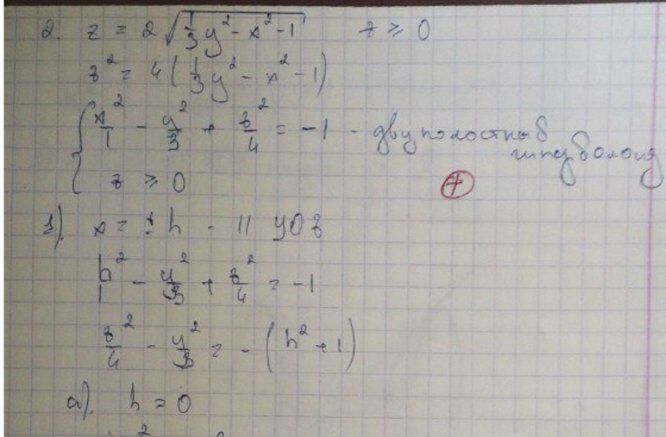 2. z = 2√(1/3 y² - x² - 1) z ≥ 0
z² = 4(1/3 y² - x² - 1)
{ x²/1 - y²/3 + z²/4 = -1 - двуполостный
гиперболоид
z ≥ 0
+
1). x = ± h - || yOz
h² - y²/3 + z²/4 = -1
z²/4 - y²/3 = -(h² + 1)
а). h = 0